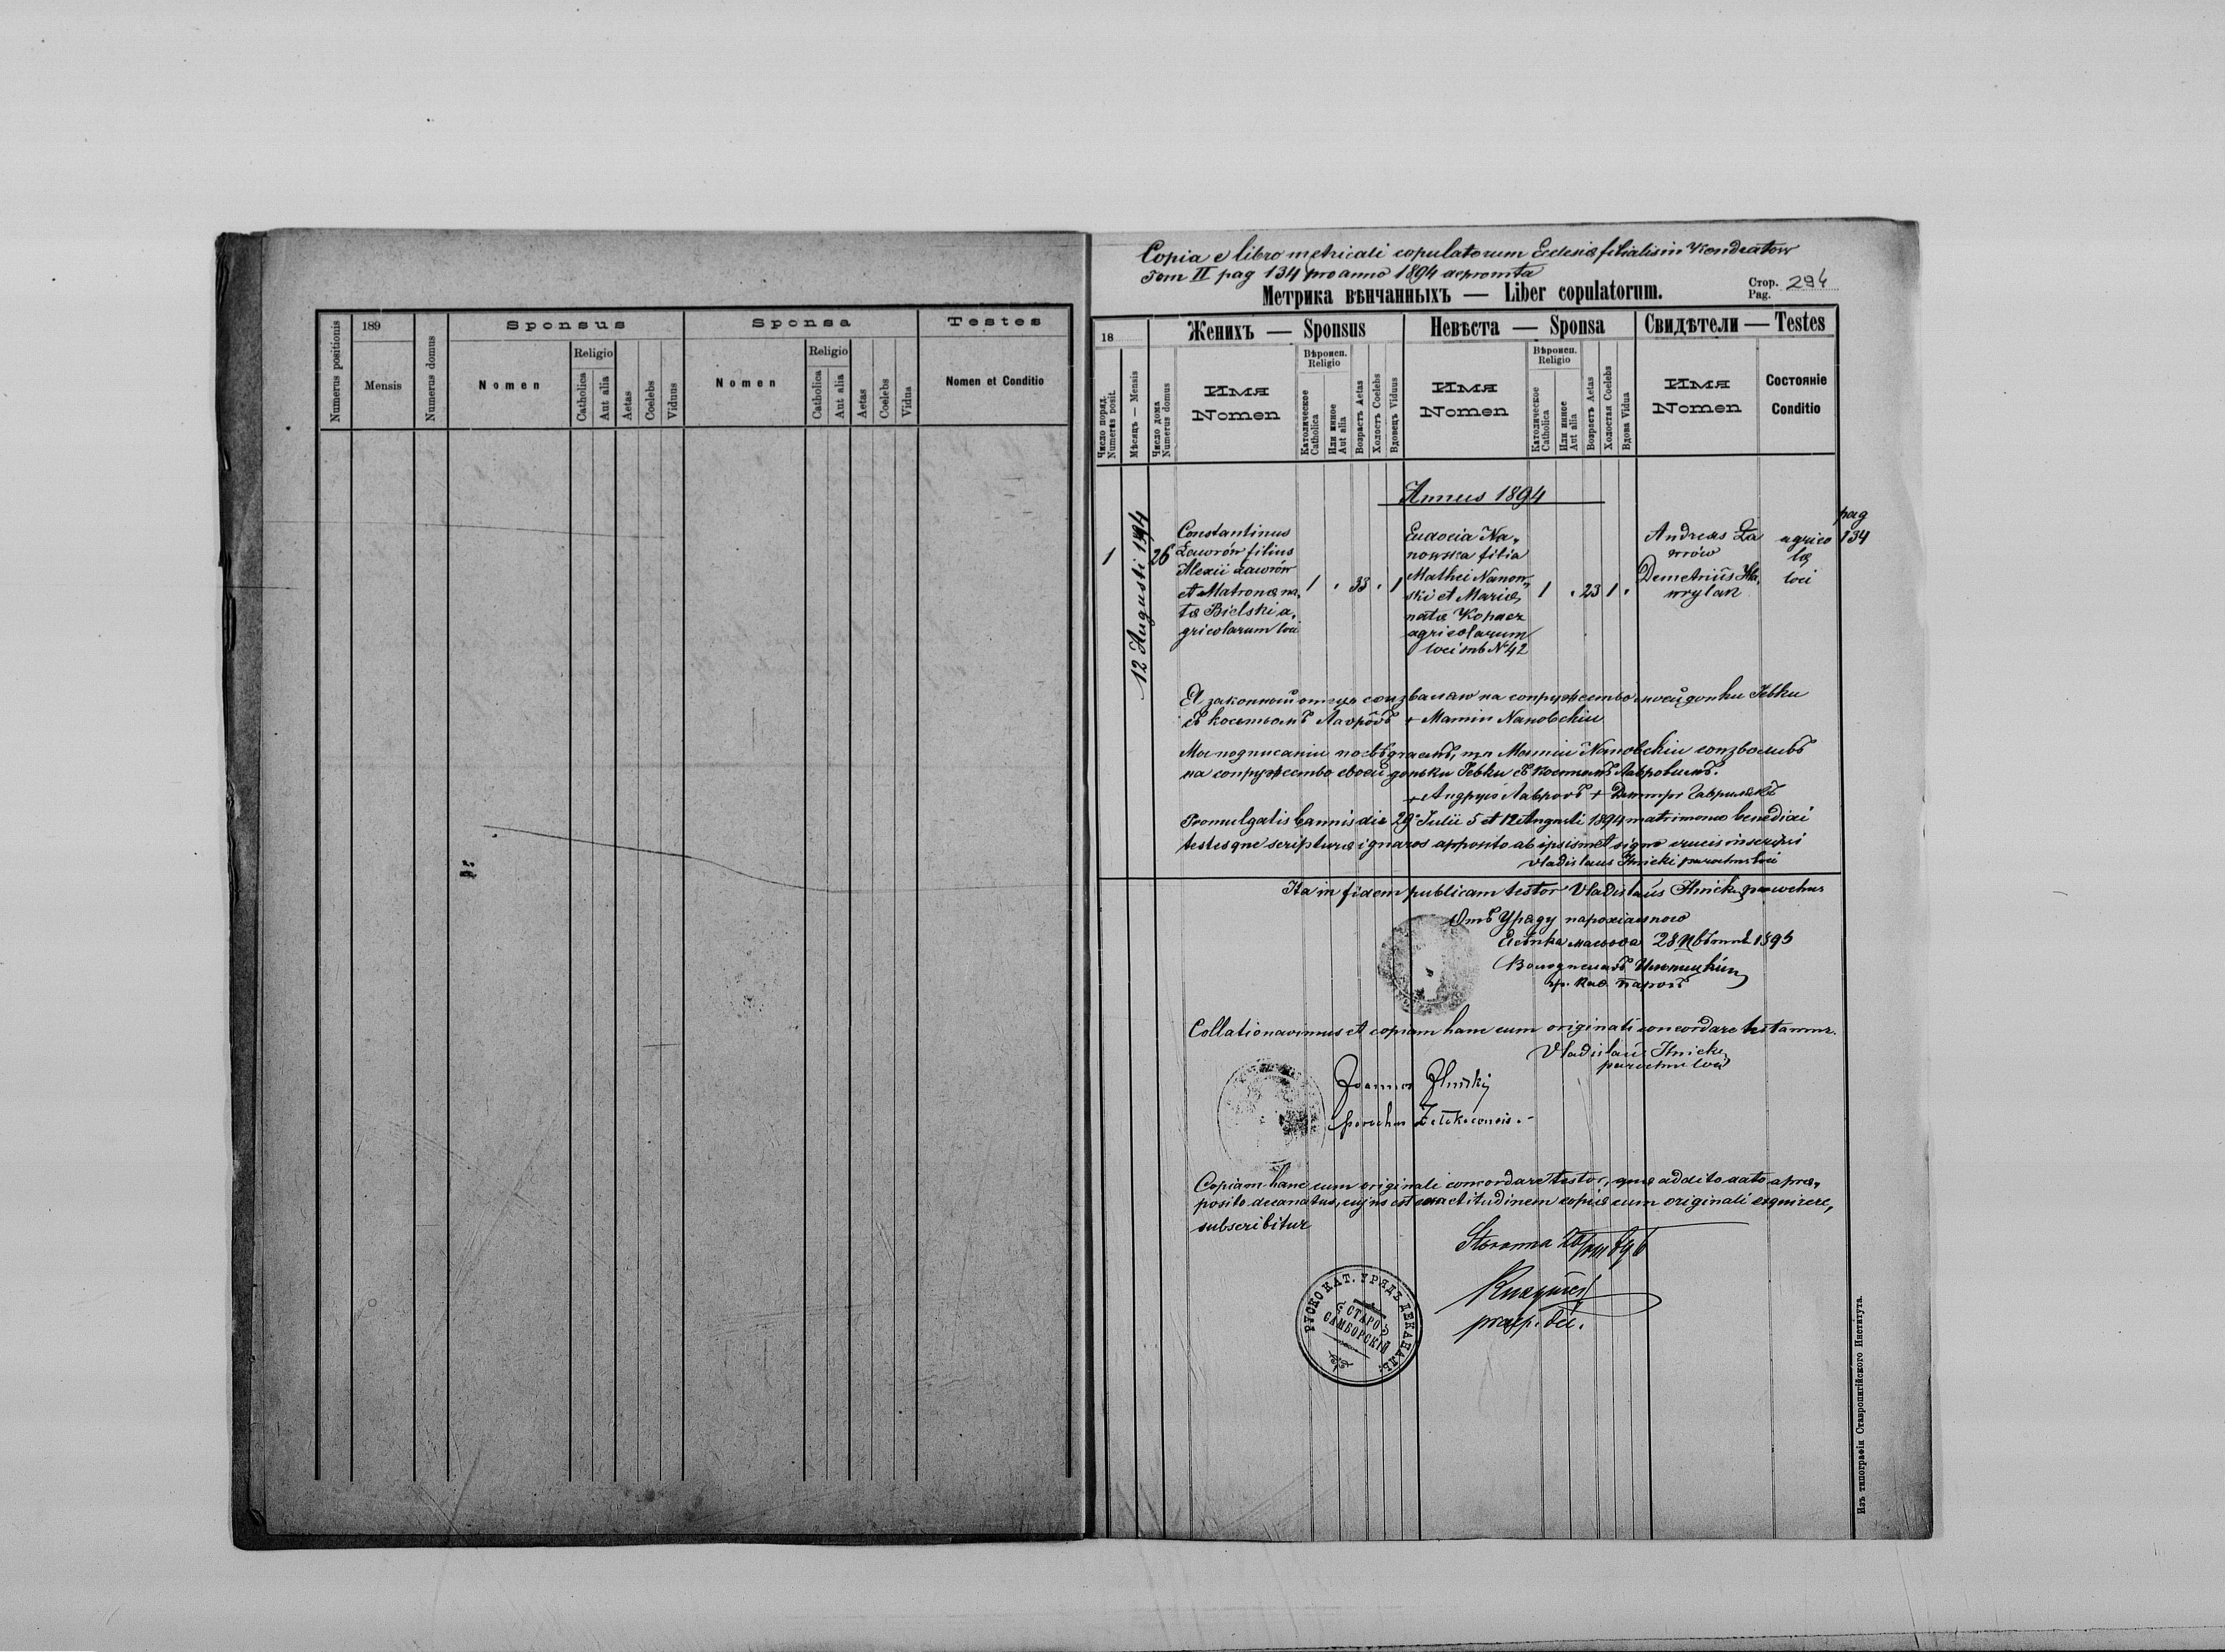 Numerus positionis
189
Mensis
Numerus domus
Sponsus
Nomen
Religio
Catholica
Aut alia
Aetas
Coelebs
Viduus
Sponsa
Nomen
Religio
Catholica
Aut alia
Aetas
Coelebs
Vidua
Testes
Nomen et Conditio
Copia e libro metricali copulatorum Ecclesiæ filialis in Kondratow
Tom II pag 134 pro anno 1894 depromta
Метрика вѣнчанныхъ — Liber copulatorum.
Стор.
Pag.
294
18
Число поряд.
Numerus posit.
Мѣсяцъ — Mensis
Число дома
Numerus domus
Женихъ — Sponsus
Имя
Nomen
Вѣроисп.
Religio
Католическое
Catholica
Или инное
Aut alia
Возрастъ Aetas
Холостъ Coelebs
Вдовецъ Viduus
Невѣста — Sponsa
Имя
Nomen
Вѣроисп.
Religio
Католическое
Catholica
Или инное
Aut alia
Возрастъ Aetas
Холостая Coelebs
Вдова Vidua
Свидѣтели — Testes
Имя
Nomen
Состояніе
Conditio
Annus 1894
1
12 Augusti 1894
26
Constantinus
Ławrów filius
Alexii Ławrów
et Matronæ na,
tæ Bielski a,
gricolarum loci
1 . 33 . 1
Eudocia Na,
nowska filia
Mathei Nanow,
ski et Mariæ,
natæ Kopacz
agricolarum
loci sub N 42
1 . 23 1 .
Andreas Ła
wrów
Demetrius Ha,
wrylak
agrico
læ
loci
pag
134
Я законный отецъ соизваляю на сопружество моей доньки Іевки
съ Костьомъ Лавровъ + Матій Нановскій
Мы подписаній посвѣдчаемъ, що Матій Нановскій соизволивъ
на сопружество своей доньки Іевки съ Костьомъ Лавровымъ.
+ Андрухъ Лавровъ + Дмитро Гаврилякъ
Promulgatis bannis die 29 Julii 5 et 12 Augusti 1894 matrimonio benedixi
testesque scripturæ ignaros apposito ab ipsismet signo crucis inscripsi
Vladislaus Ilnicki parochus loci
Ita in fidem publicam testor Vladislaus Ilnicki parochus
Отъ Уряду парохіального
28 1895
Ильницкій
гр. кат. парохъ
Collationavimus et copiam hanc cum originali concordare testamur.
Vladislaus Ilnicki
parochus loci
Joannes Ilnicki
parochus
Copiam hanc cum originali concordare testor, quæ addito dato a præ,
posito decanatus, cujus est exactitudinem copiæ cum originali exquirere,
subscribitur
РУСКО КАТ. УРЯДЪ ДЕКАНАЛЬ.
СТАРО
САМБОРСКІЙ
Изъ типографіи Ставропигійского Института.